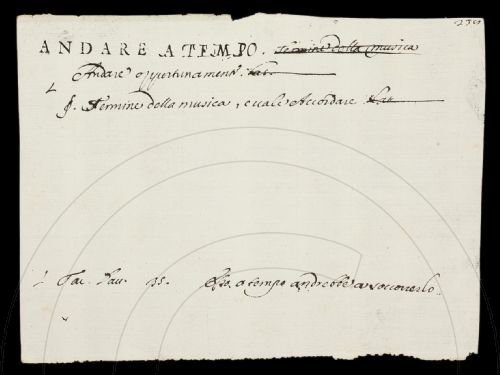 ANDARE A TEMPO. Termine della musica
Andare opportunament. Lat.
§. Termine della musica, e vale Accordare. Lat.
Tac. Dav. 35. a tempo andrebbe a soccorrerlo.